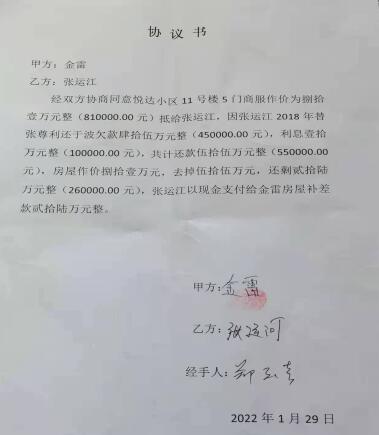 协议书
甲方：金雷
乙方：张运江
经双方协商同意悦达小区 11 号楼 5 门商服作价为捌拾
壹万元整（810000.00 元）抵给张运江，因张运江 2018 年替
张尊利还于波欠款肆拾伍万元整（450000.00 元），利息壹拾
万元整（100000.00 元），共计还款伍拾伍万元整（550000.00
元），房屋作价捌拾壹万元，去掉伍拾伍万元，还剩贰拾陆
万元整（260000.00 元），张运江以现金支付给金雷房屋补差
款贰拾陆万元整。
甲方：金雷
乙方：张运河
经手人：郑
2022 年 1 月 29 日